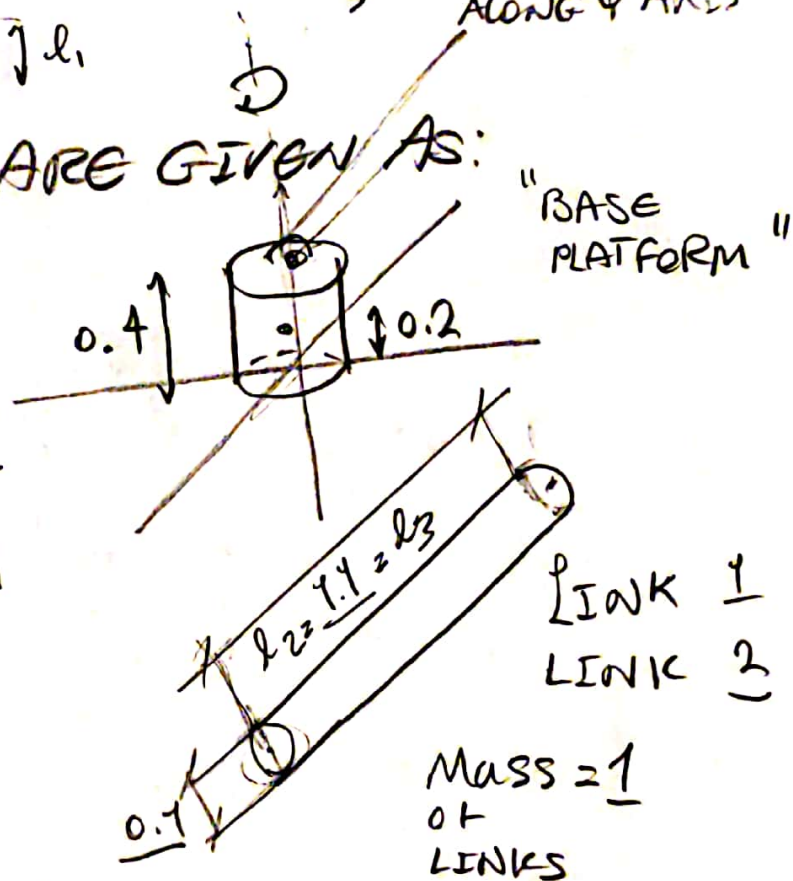 ALONG Y AXIS
l₁
ARE GIVEN AS:
"BASE
PLATFORM"
0.4
0.2
l2=1.1=l3
LINK 1
LINK 2
Mass = 1
OF
LINKS
0.1